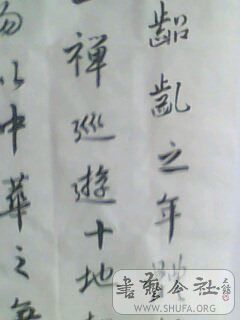 齠齔之年
禪巡遊十地
以中華之
書藝公社
WWW.SHUFA.ORG